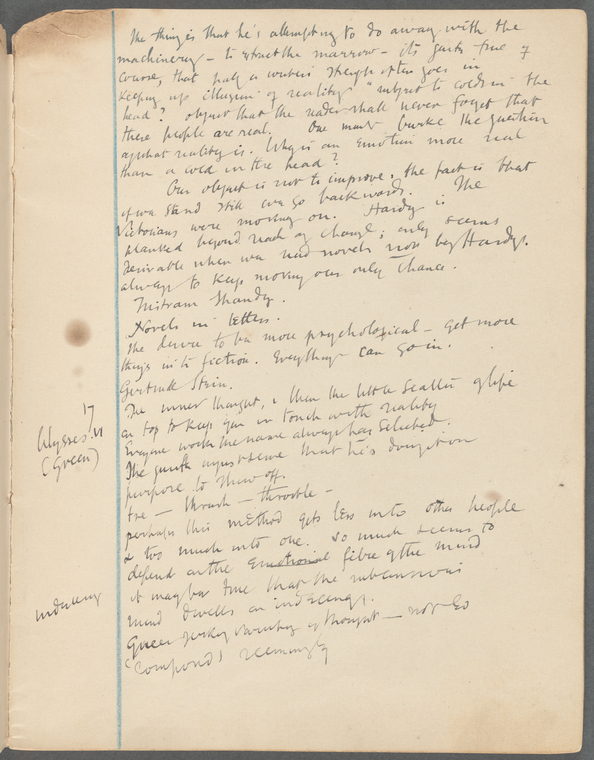 The thing is that he's attempting to do away with the
machinery – to extract the marrow – its quite true of
course, that half a writer's strength often goes in
keeping up illusion of reality. "subject to colds in the
head"? object that the reader shall never forget that
these people are real. One must the question
of what reality is. Why is an emotion more real
than a cold in the head?
Our object is not to improve; the fact is that
if we stand still we go backwards. The
Victorians were moving on. Hardy is
planked beyond reach of change; only seems
desirable when we read novels now by Hardy.
always to keep moving our only chance.
Tristram Shandy.
Novels in letters.
The desire to be more psychological – get more
things into fiction. Everything can go in.
Gertrude Stein.
The inner thought, & then the little scatter of life
on top to keep you in touch with reality
17
Ulysses. VI
(Green)
Everyone the same always has selected.
The that he's
purpose to throw off.
tre – thrush – throstle –
perhaps this method gets less into other people
& too much into one. So much seems to
depend on the emotional fibre of the mind
it may be true that the subconscious
mind dwells on indecency.
indecency
Queer jerky variety of thought – not so
'composed' seemingly